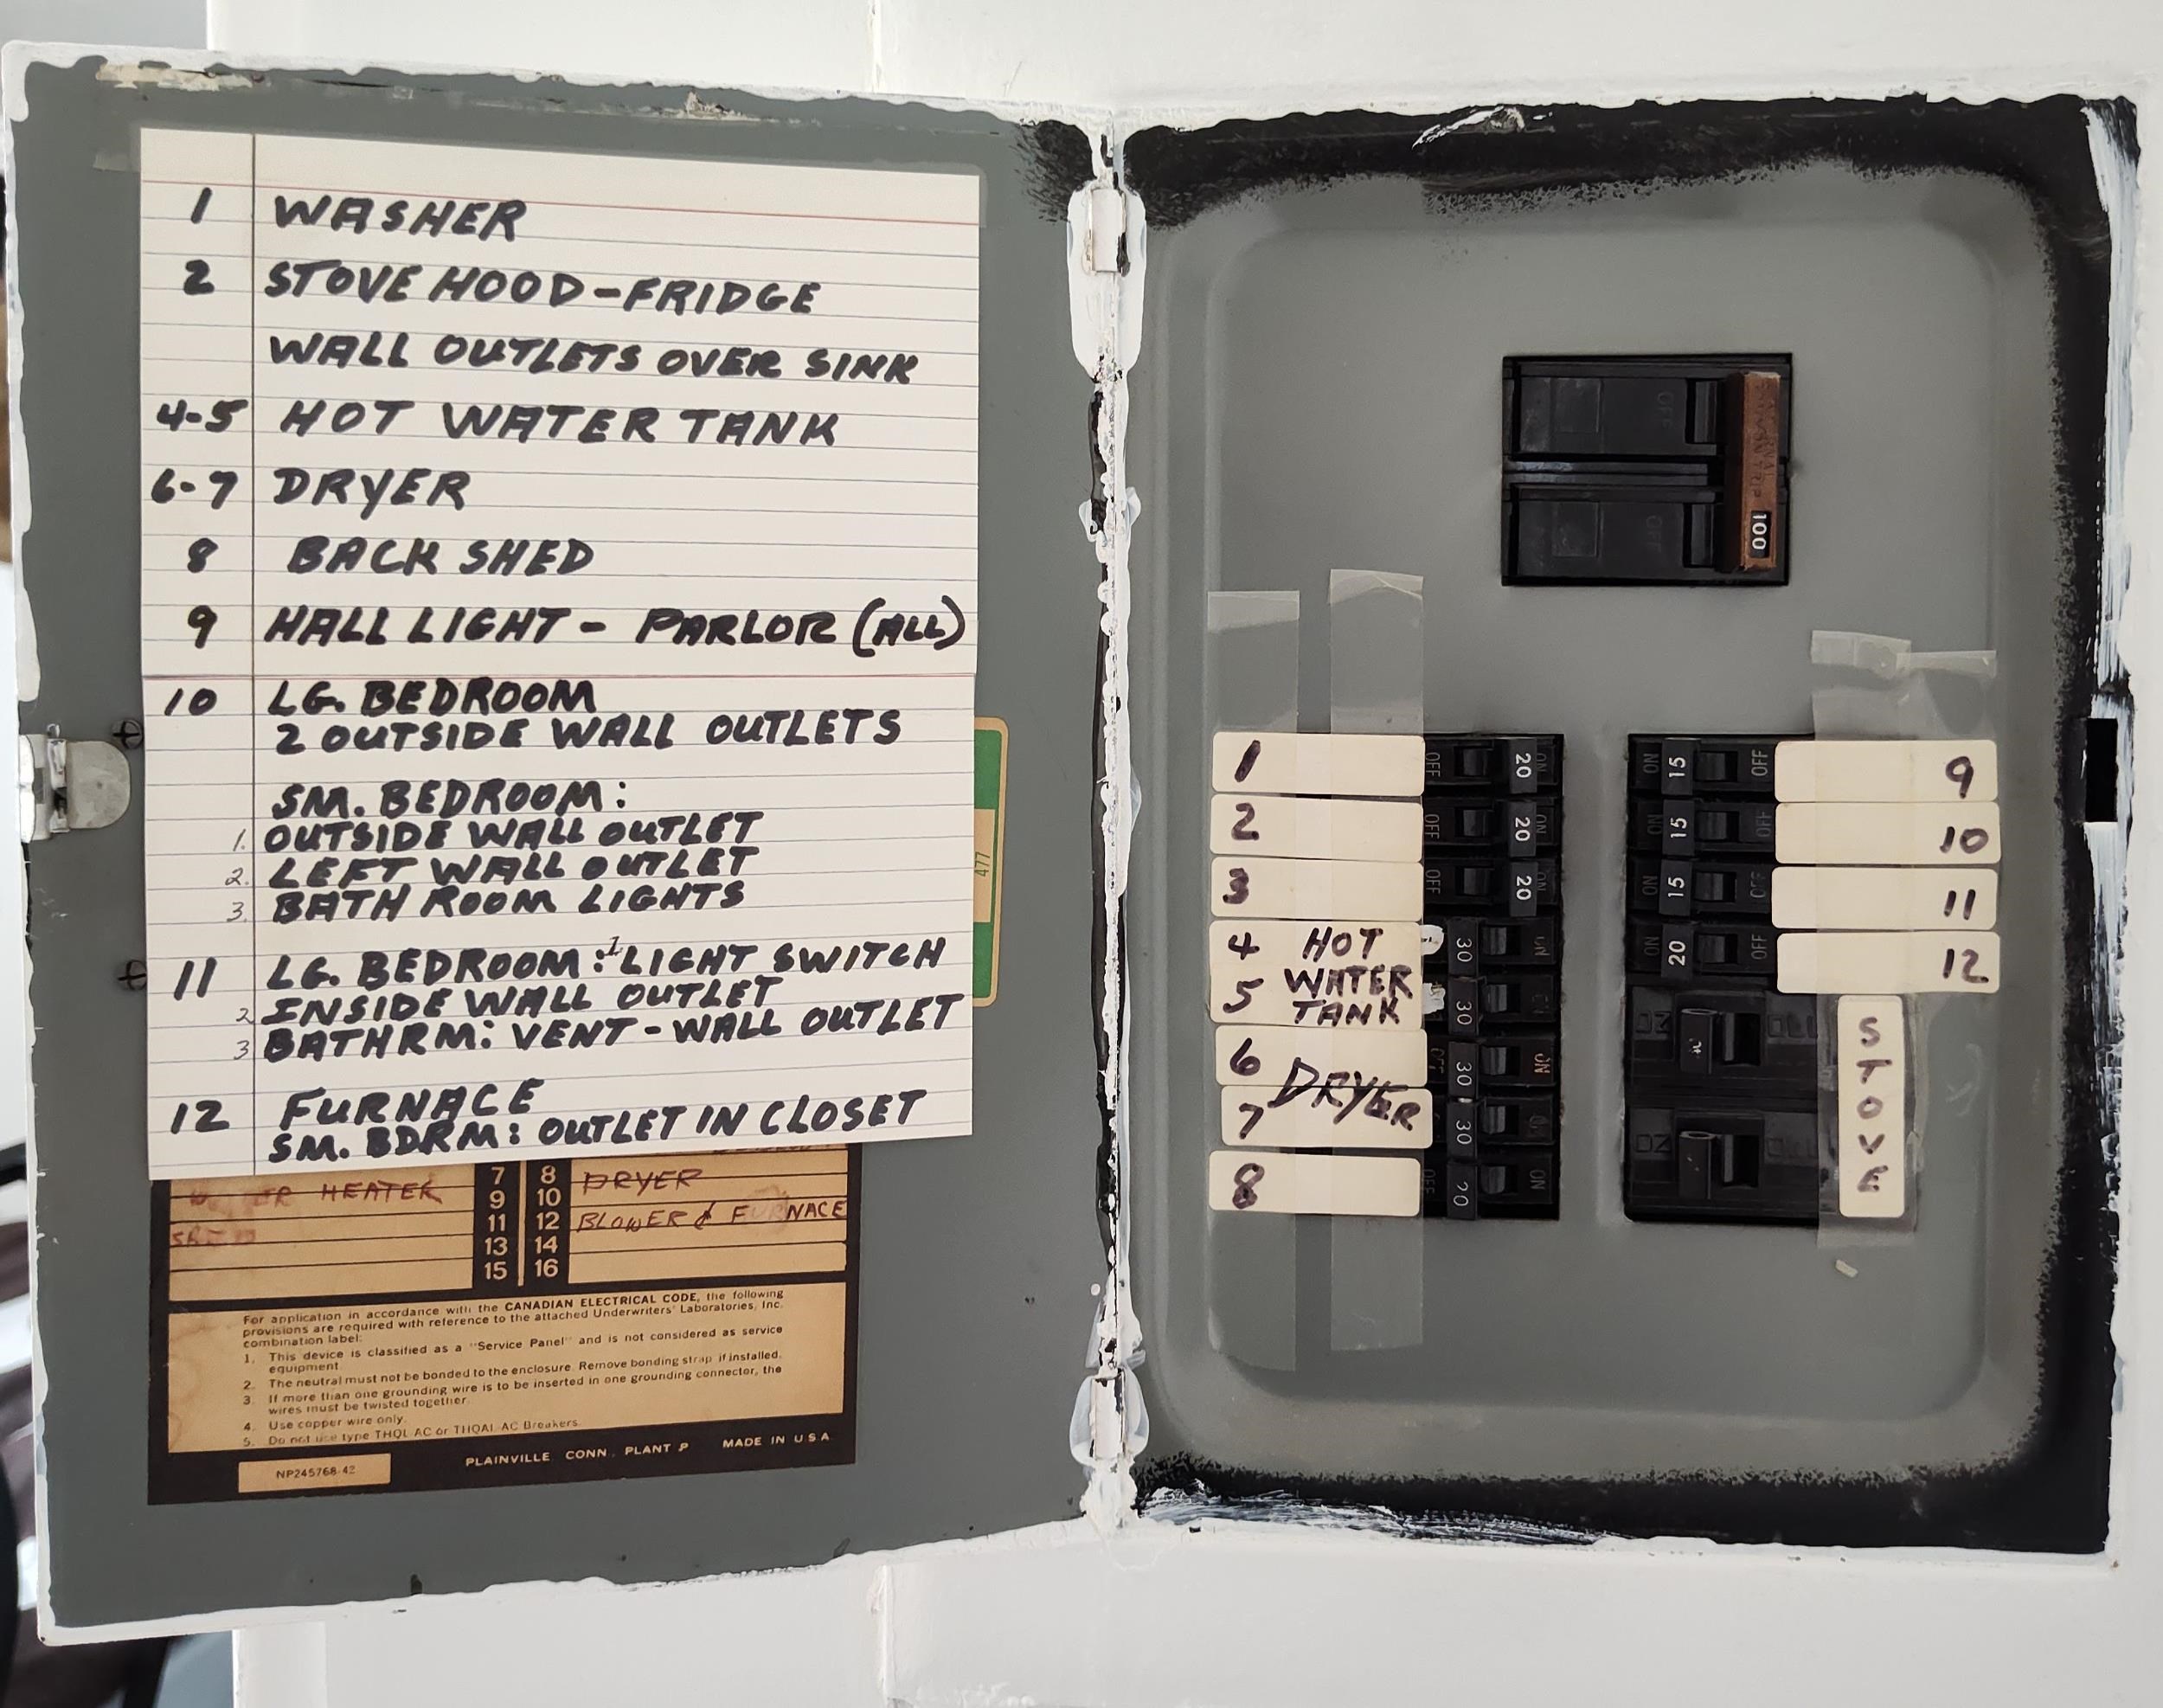 1 WASHER
2 STOVE HOOD-FRIDGE
WALL OUTLETS OVER SINK
4-5 HOT WATER TANK
6-7 DRYER
8 BACK SHED
9 HALL LIGHT - PARLOR (ALL)
10 LG. BEDROOM
2 OUTSIDE WALL OUTLETS
SM. BEDROOM:
1. OUTSIDE WALL OUTLET
2. LEFT WALL OUTLET
3. BATH ROOM LIGHTS
11 LG. BEDROOM: 1 LIGHT SWITCH
2 INSIDE WALL OUTLET
3 BATHRM: VENT - WALL OUTLET
12 FURNACE
SM. BDRM: OUTLET IN CLOSET
HEATER 7 8 DRYER
9 10
11 12 BLOWER & FURNACE
13 14
15 16
For application in accordance with the CANADIAN ELECTRICAL CODE, the following
provisions are required with reference to the attached Underwriters' Laboratories, Inc.
combination label:
1. This device is classified as a "Service Panel" and is not considered as service
equipment.
2. The neutral must not be bonded to the enclosure. Remove bonding strap if installed.
3. If more than one grounding wire is to be inserted in one grounding connector, the
wires must be twisted together.
4. Use copper wire only.
5. Do not use type THQL AC or THQAL AC Breakers.
NP245768-42
PLAINVILLE CONN. PLANT P MADE IN U S A
477
OFF
OFF
100
1 OFF 20 ON
2 OFF 20 ON
3 OFF 20 ON
4 HOT 30 ON
5 WATER 30
TANK
6 DRYER OFF 30 ON
7 30
8 OFF 20 ON
ON 15 OFF 9
ON 15 OFF 10
ON 15 OFF 11
ON 20 OFF 12
ON
ON
STOVE